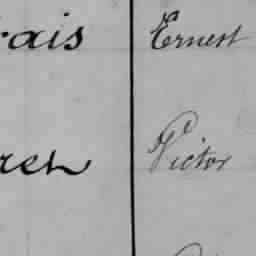 rais Ernest
rch Victor